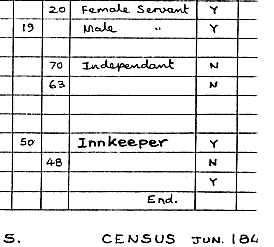 20 Female Servant Y
19 Male " Y
70 Independant N
63 N
50 Innkeeper Y
48 N
Y
End.
S. CENSUS JUN. 184